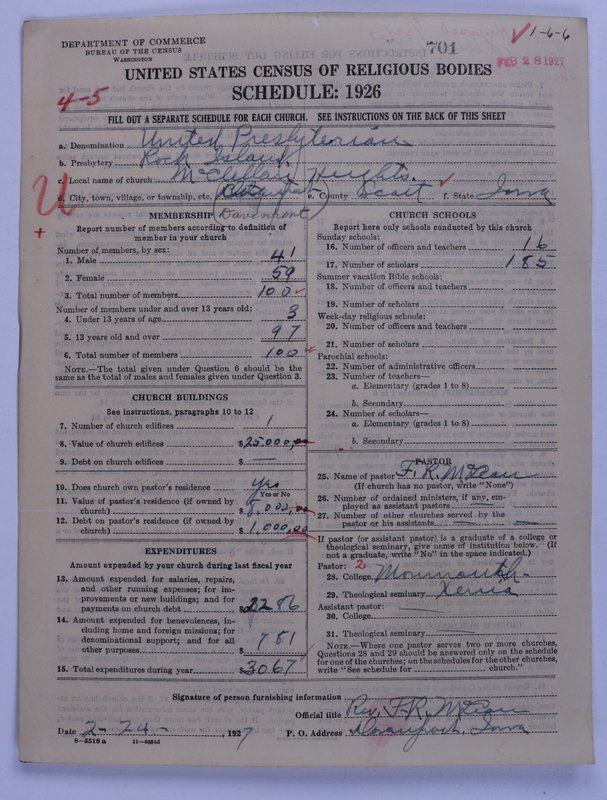 1-6-6
DEPARTMENT OF COMMERCE
BUREAU OF THE CENSUS
WASHINGTON
701
FEB 28 1927
UNITED STATES CENSUS OF RELIGIOUS BODIES
SCHEDULE: 1926
4-5
FILL OUT A SEPARATE SCHEDULE FOR EACH CHURCH. SEE INSTRUCTIONS ON THE BACK OF THIS SHEET
a. Denomination United Presbyterian
b. Presbytery Rock Island.
c. Local name of church McClellan Heights.
d. City, town, village, or township, etc. Davenport e. County Scott f. State Iowa
U
MEMBERSHIP
Report number of members according to definition of
member in your church
Number of members, by sex:
1. Male 41
2. Female 59
3. Total number of members 100
Number of members under and over 13 years old:
4. Under 13 years of age 3
5. 13 years old and over 97
6. Total number of members 100
NOTE.—The total given under Question 6 should be the
same as the total of males and females given under Question 3.
CHURCH BUILDINGS
See instructions, paragraphs 10 to 12
7. Number of church edifices 1
8. Value of church edifices $25.000,00
9. Debt on church edifices $ —
10. Does church own pastor's residence Yes
Yes or No
11. Value of pastor's residence (if owned by
church) $8,000,00
12. Debt on pastor's residence (if owned by
church) $1,000,00
EXPENDITURES
Amount expended by your church during last fiscal year
13. Amount expended for salaries, repairs,
and other running expenses; for im-
provements or new buildings; and for
payments on church debt $2286
14. Amount expended for benevolences, in-
cluding home and foreign missions; for
denominational support; and for all
other purposes $781
15. Total expenditures during year $3067
CHURCH SCHOOLS
Report here only schools conducted by this church
Sunday schools:
16. Number of officers and teachers 16
17. Number of scholars 185
Summer vacation Bible schools:
18. Number of officers and teachers
19. Number of scholars
Week-day religious schools:
20. Number of officers and teachers
21. Number of scholars
Parochial schools:
22. Number of administrative officers
23. Number of teachers—
a. Elementary (grades 1 to 8)
b. Secondary
24. Number of scholars—
a. Elementary (grades 1 to 8)
b. Secondary
PASTOR
25. Name of pastor F. R. McLean
(If church has no pastor, write "None")
26. Number of ordained ministers, if any, em-
ployed as assistant pastors —
27. Number of other churches served by the
pastor or his assistants — —
If pastor (or assistant pastor) is a graduate of a college or
theological seminary, give name of institution below. (If
not a graduate, write "No" in the space indicated.)
Pastor: 2
28. College Monmouth
29. Theological seminary Xenia
Assistant pastor:
30. College —
31. Theological seminary —
NOTE.—Where one pastor serves two or more churches,
Questions 28 and 29 should be answered only on the schedule
for one of the churches; on the schedules for the other churches,
write "See schedule for church."
Signature of person furnishing information
Official title Rev. F. R. McLean
Date 2-24-, 1927 P. O. Address Davenport, Iowa
8-5518a 11-9684d